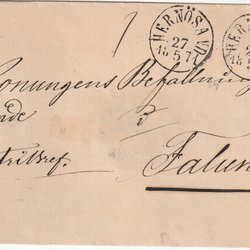 HERNÖSAND
27
18 5 77
HER
2
18
Konungens Befallning
nde
i
Falun